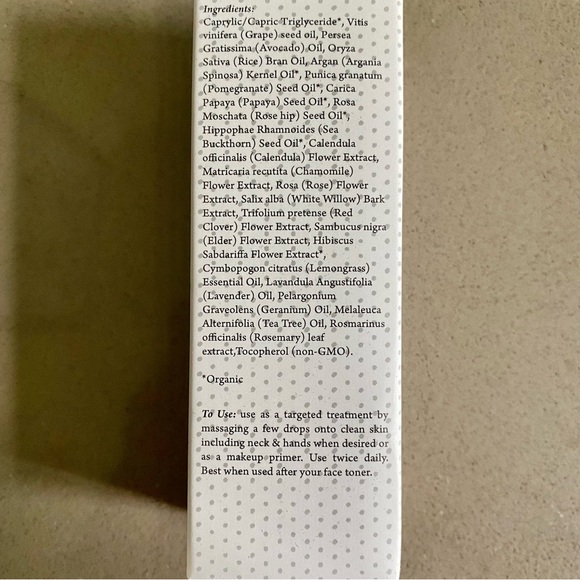 Ingredients:
Caprylic/Capric Triglyceride*, Vitis
vinifera (Grape) seed oil, Persea
Gratissima (Avocado) Oil, Oryza
Sativa (Rice) Bran Oil, Argan (Argania
Spinosa) Kernel Oil*, Punica granatum
(Pomegranate) Seed Oil*, Carica
Papaya (Papaya) Seed Oil*, Rosa
Moschata (Rose hip) Seed Oil*,
Hippophae Rhamnoides (Sea
Buckthorn) Seed Oil*, Calendula
officinalis (Calendula) Flower Extract,
Matricaria recutita (Chamomile)
Flower Extract, Rosa (Rose) Flower
Extract, Salix alba (White Willow) Bark
Extract, Trifolium pretense (Red
Clover) Flower Extract, Sambucus nigra
(Elder) Flower Extract, Hibiscus
Sabdariffa Flower Extract*,
Cymbopogon citratus (Lemongrass)
Essential Oil, Lavandula Angustifolia
(Lavender) Oil, Pelargonium
Graveolens (Geranium) Oil, Melaleuca
Alternifolia (Tea Tree) Oil, Rosmarinus
officinalis (Rosemary) leaf
extract,Tocopherol (non-GMO).
*Organic
To Use: use as a targeted treatment by
massaging a few drops onto clean skin
including neck & hands when desired or
as a makeup primer. Use twice daily.
Best when used after your face toner.